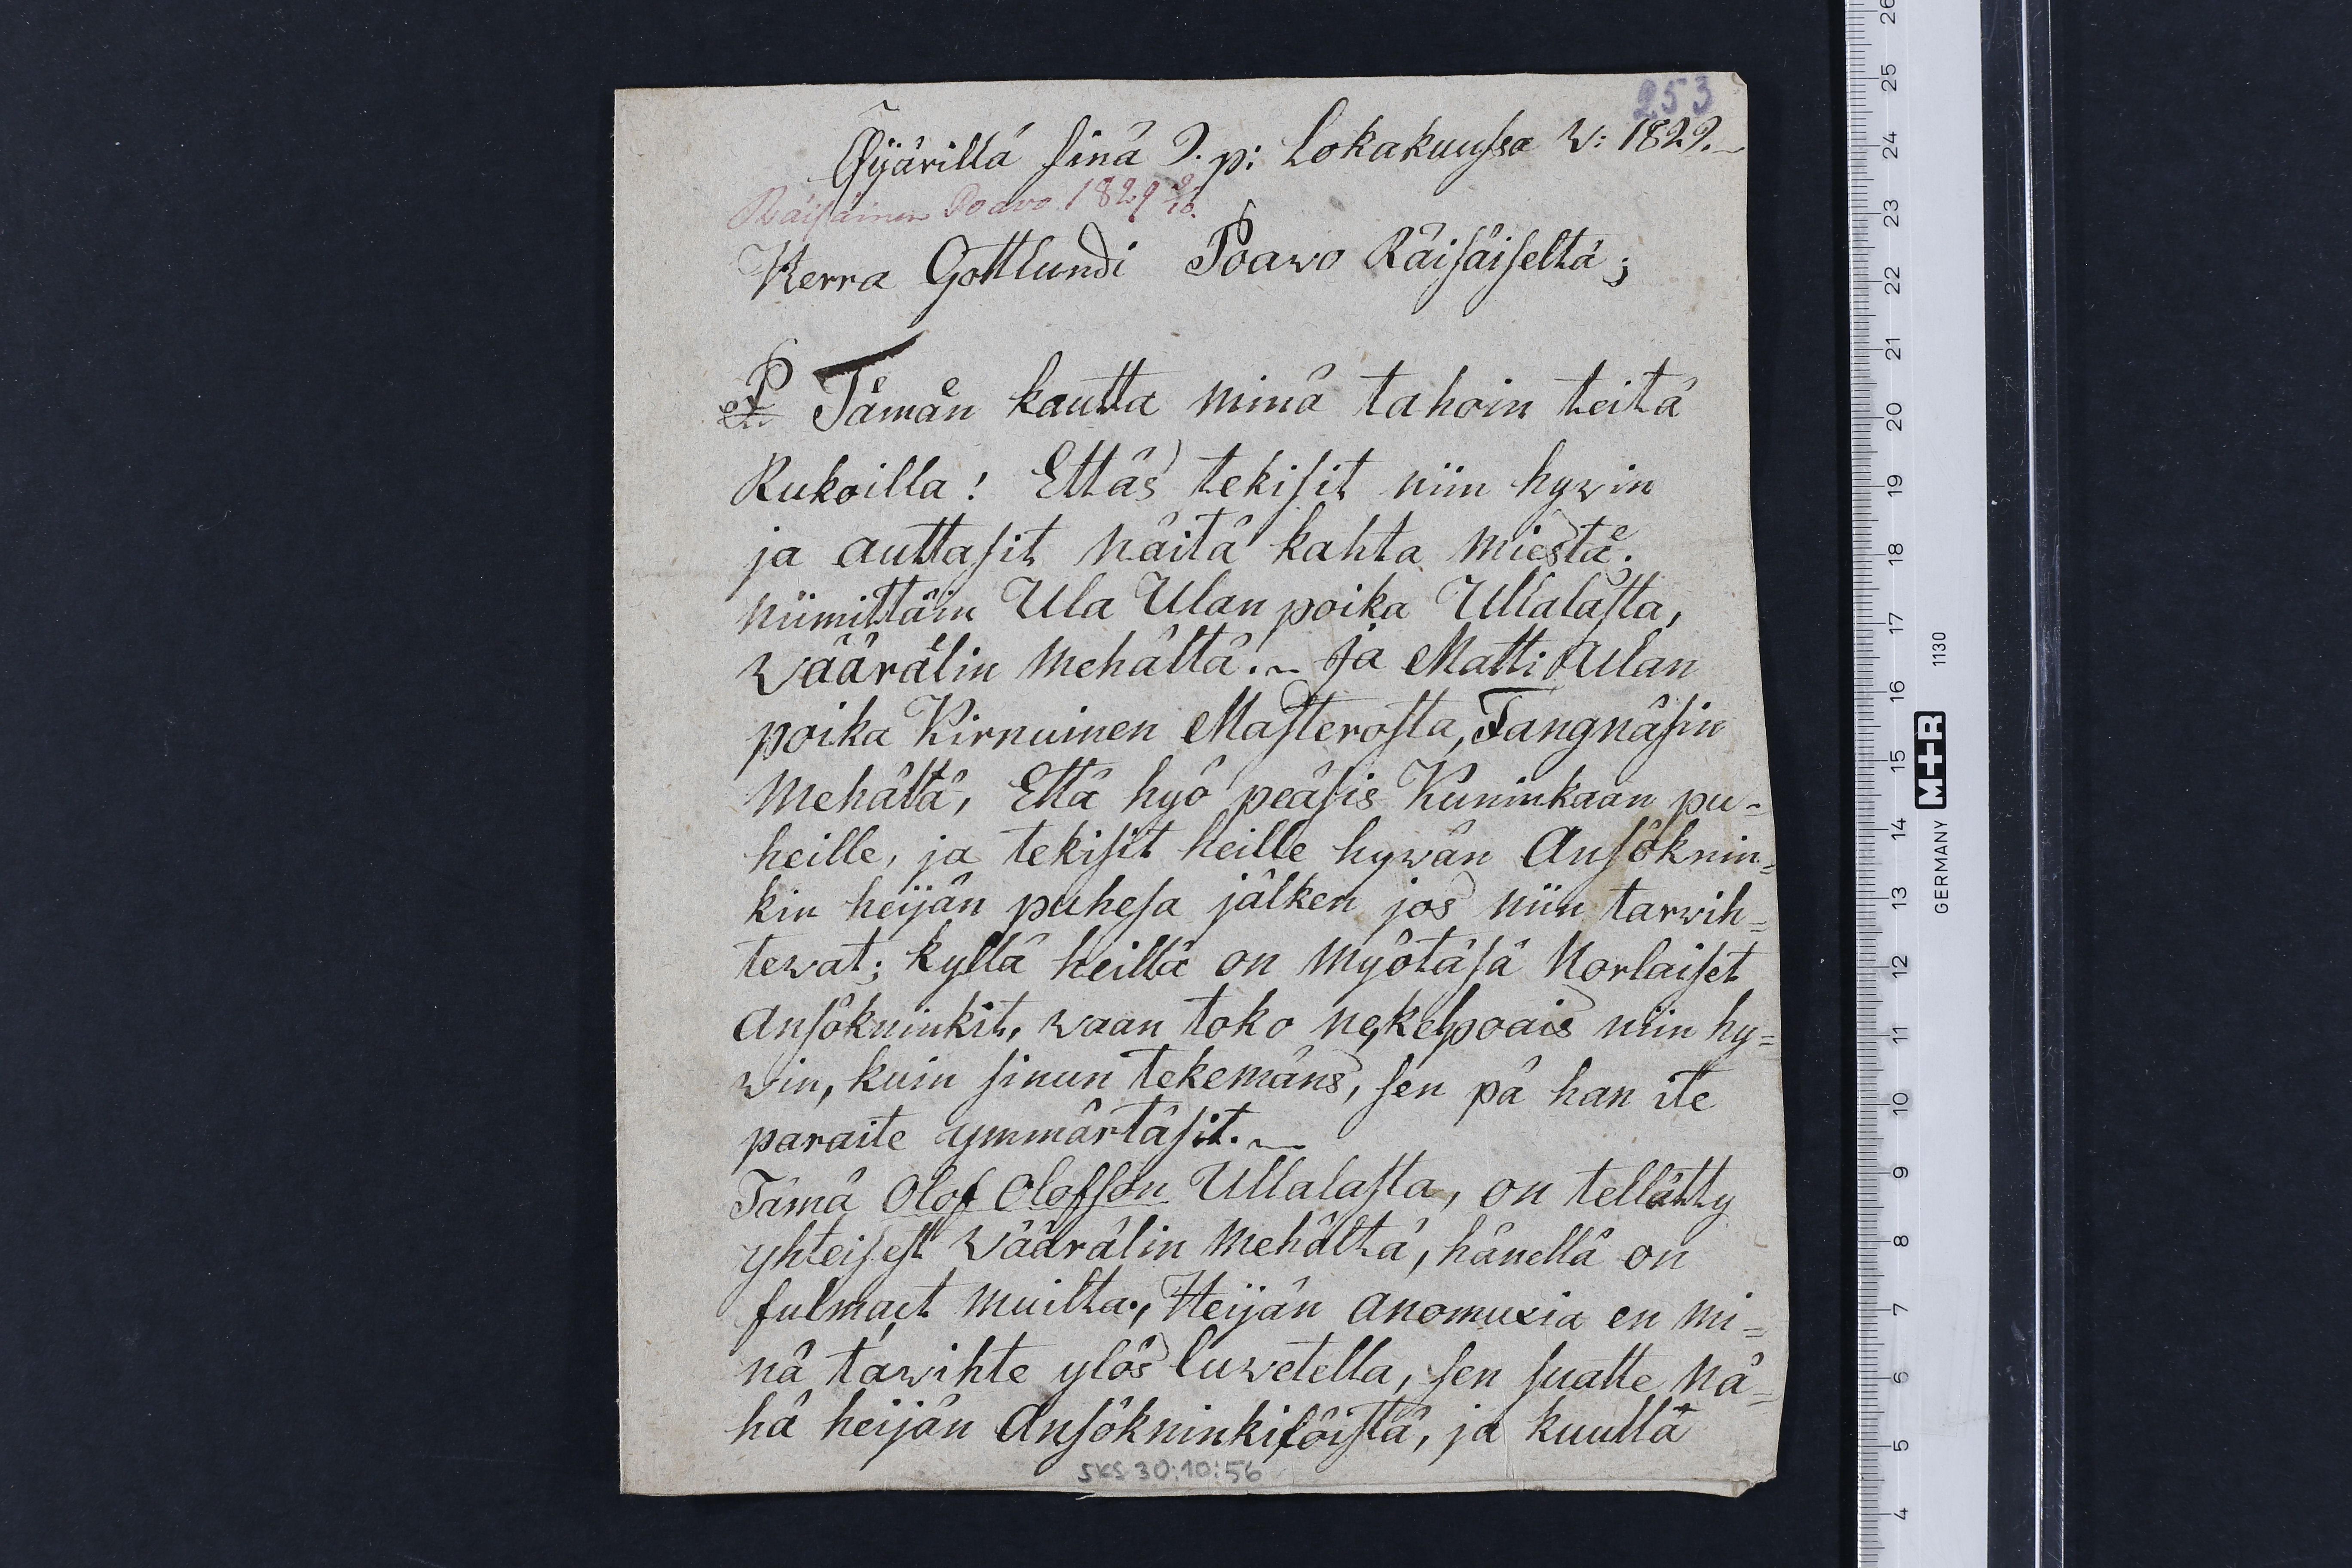 253
Öyjärillä sinä 9. p: Lokakuussa w: 1829.
Räisäinen Poavo 1829 9/10.
Herra Gottlundi Poawo Räisäiseltä;
Tämän kautta minä tahoin teitä
Rukoilla! Ettäs tekisit niin hywin
ja auttasit näitä kahta miestä;
niimittäin Ula Ulan poika Ullalasta,
Wäärälin mehältä. Ja Matti Ulan
poika Kirnuinen Masterosta, Fangnäsin
mehältä, Että hyö peäsis Kuninkaan pu-
heille, ja tekisit heille hywän Ansöknin=
kin heijän puhesa jälken jos niin tarwih=
tewat; kyllä heillä on myötäsä Norlaiset
ansökninkit, waan toko ne kelpoais niin hy=
win, kuin sinun tekemäns, sen pä han ite
paraite ymmärtäsit.
Tämä Olof Olofson Ullalasta, on tellätty
yhteisest Wäärälin mehältä, hänellä on
fulmact muilta, Heijän anomuxia en mi=
nä tawihte ylös luwetella, sen suatte nä=
hä heijän Ansökninkilöistä, ja kuulla
SKS 30:10:56
GERMANY M+R 1130
26
25
24
23
22
21
20
19
18
17
16
15
14
13
12
11
10
9
8
7
6
5
4